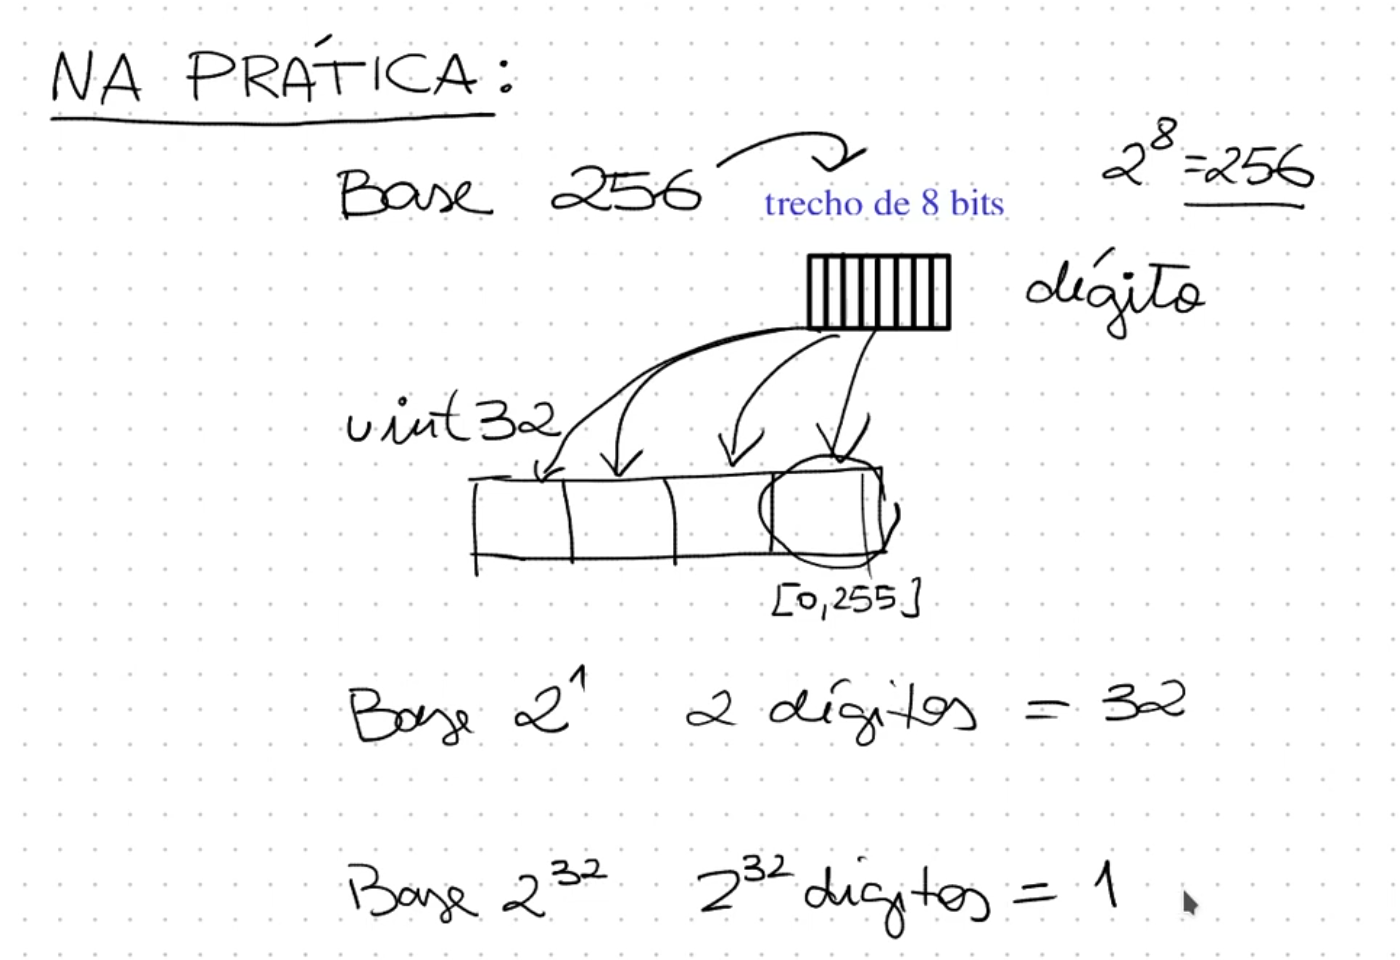 NA PRÁTICA:
Base 256 trecho de 8 bits 2⁸ = 256
dígito
uint32
[0,255]
Base 2¹ 2 dígitos = 32
Base 2³² 2³² digitos = 1